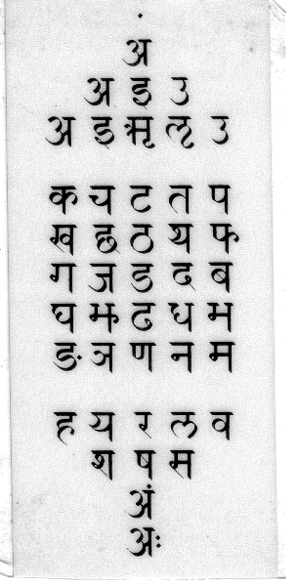 अ
अ इ उ
अ इ ऋ ऌ उ
क च ट त प
ख छ ठ थ फ
ग ज ड द ब
घ झ ढ ध भ
ङ ञ ण न म
ह य र ल व
श ष स
अं
अः